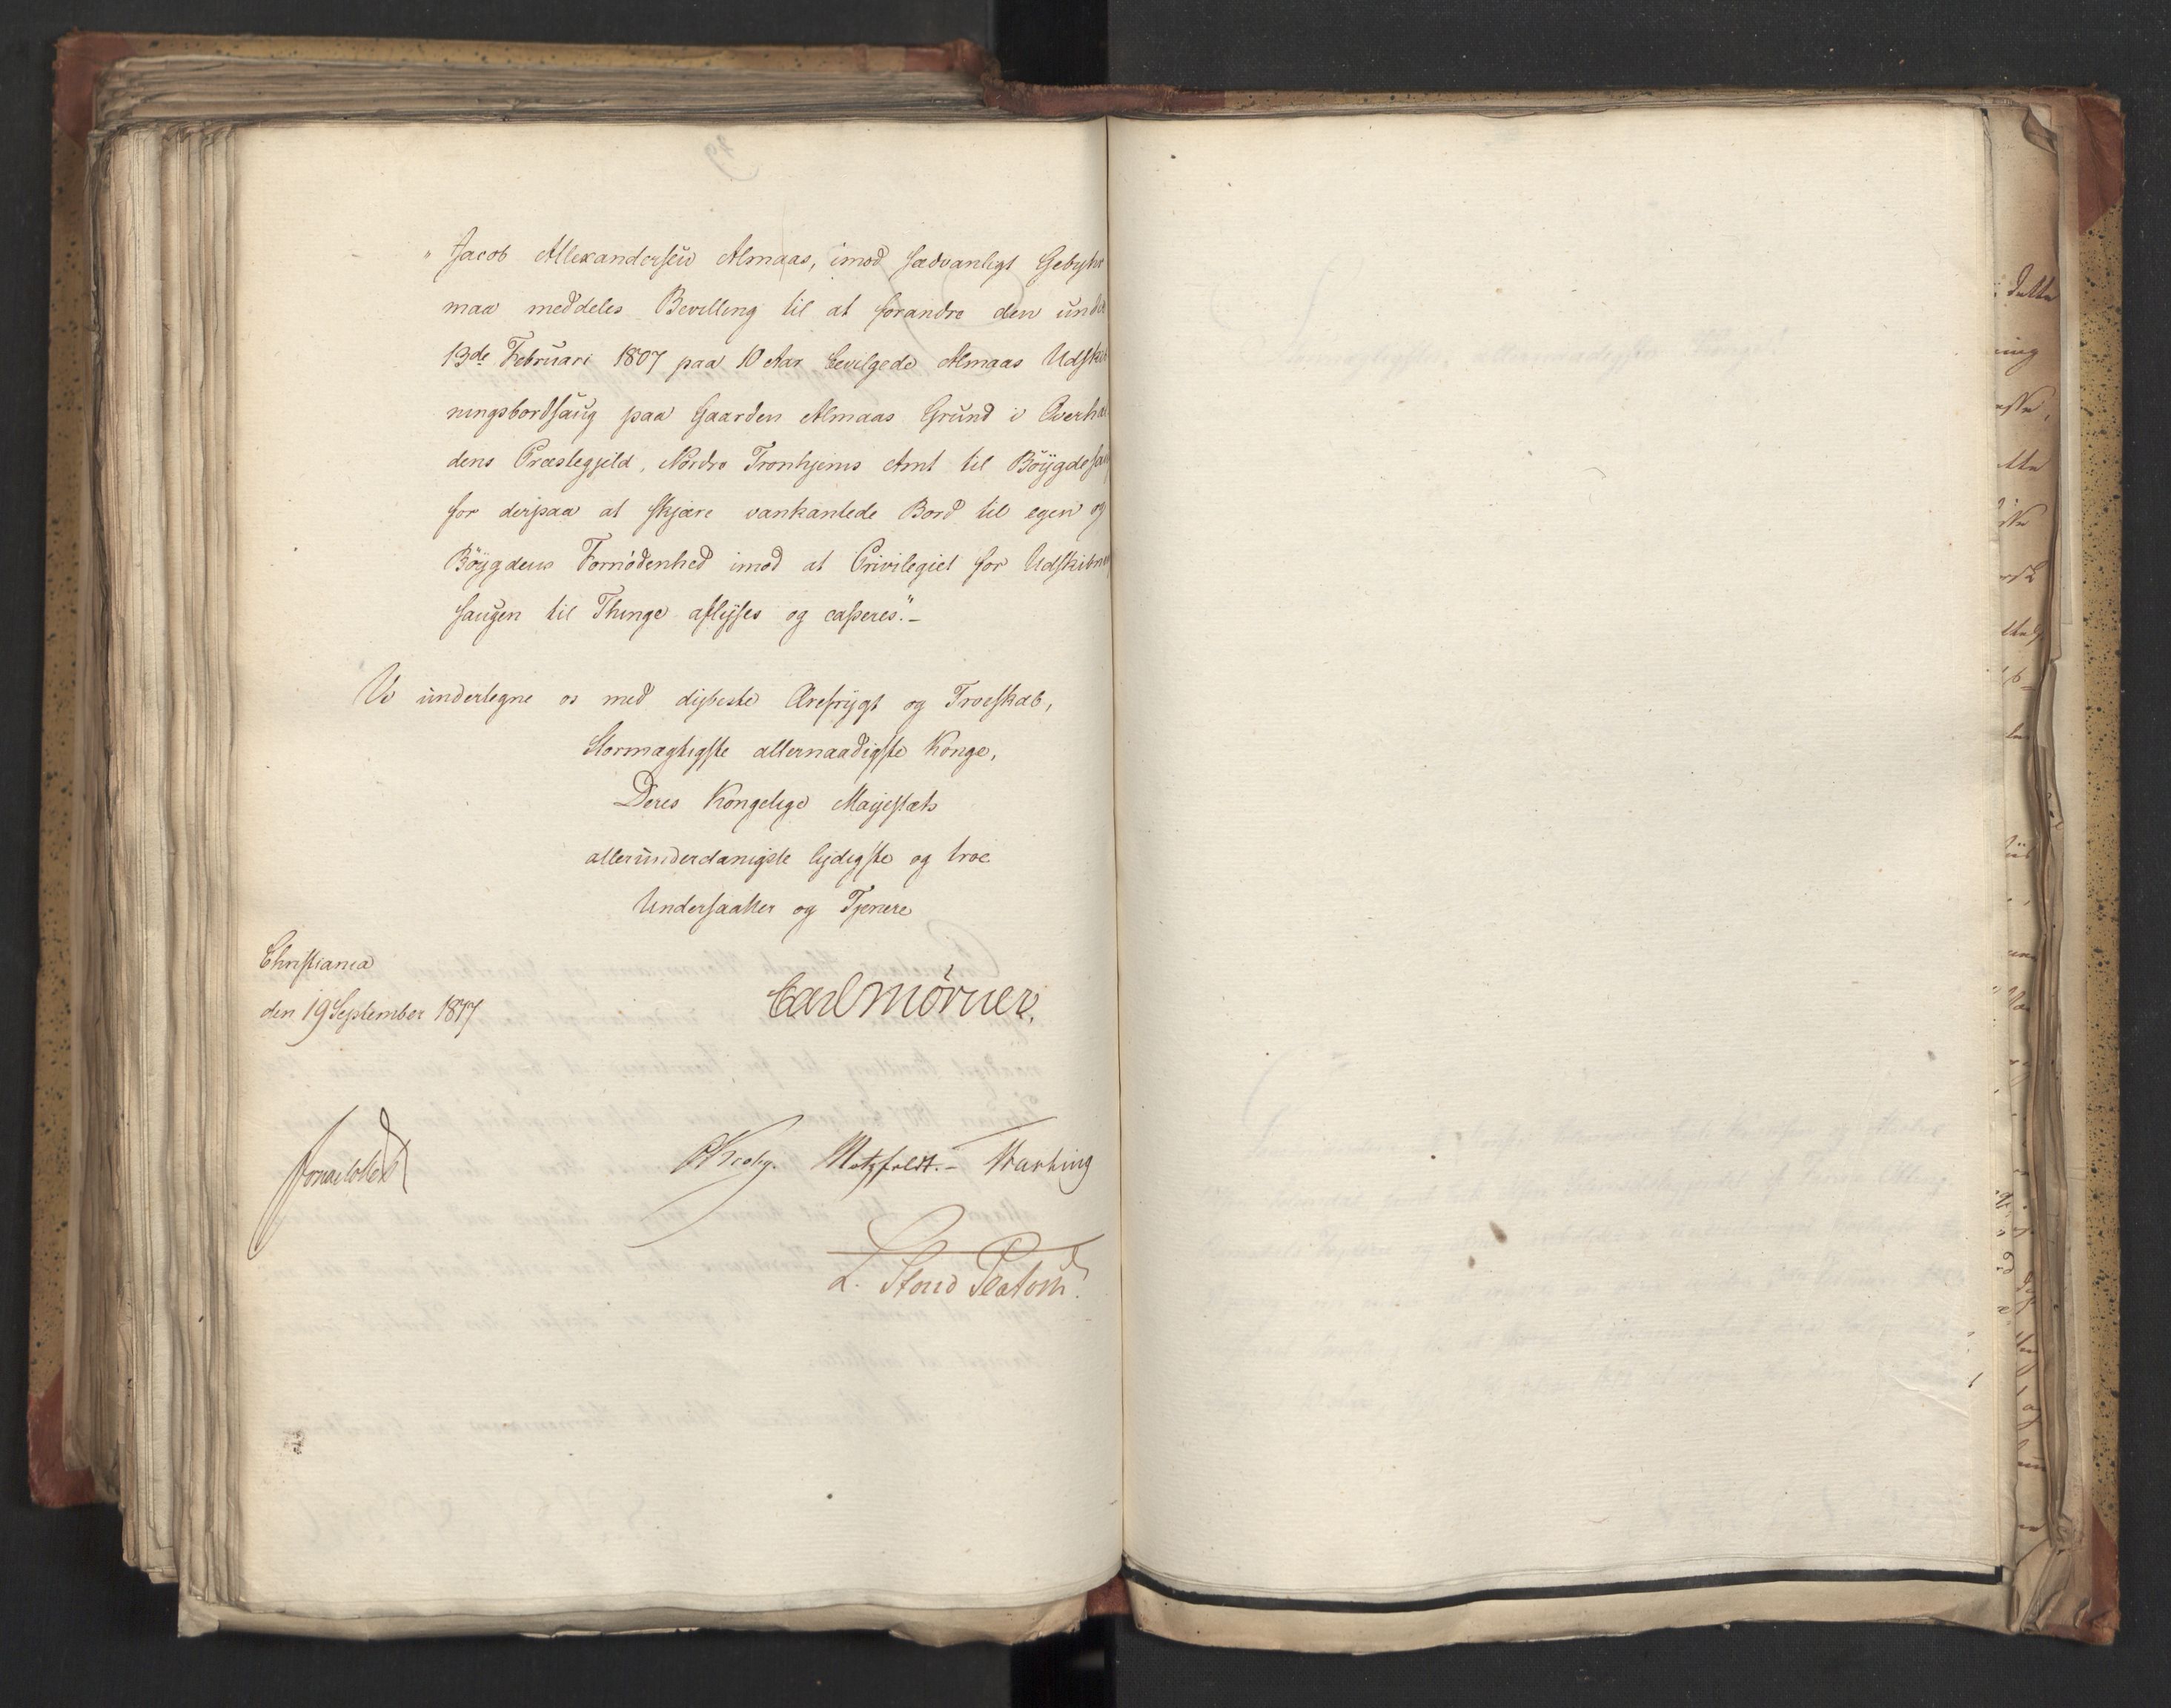 "Jacob Allexandersen Almaas, imod sædvanligt Gebyhr
maa meddeles Bevilling til at forandre den unde
13de Februari 1807 paa 10 Aar bevilgede Almaas Udskib
ningsbordsaug paa Gaarden Almaas Grund i Overhal
dens Præstegjeld, Nordre Tronhjems Amt til Böygdesau
for derpaa at skjære vankantede Bord til egen og
Böygdens Fornødenhed imod at Privilegiet for Udskibn
saugen til Thinge aflyses og casseres."-
Vi undertegne os med dybeste Ærefrygt og Troeskab,
Stormægtigste allernaadigste Konge,
Deres Kongelige Mayestæts
allerunderdanigste lydigste og troe
Undersaatter og Tjenere
Christiania
den 19 September 1817
Carl Mörner.
Sommerhielm
PKrohg. Motzfeldt.- 
L. Stoud Platou